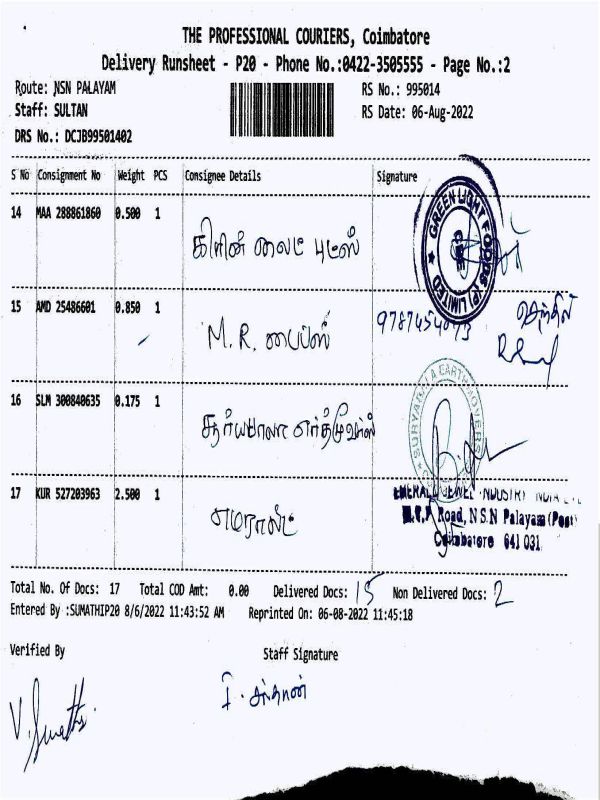 THE PROFESSIONAL COURIERS, Coimbatore
Delivery Runsheet - P20 - Phone No.:0422-3505555 - Page No.:2
Route: NSN PALAYAM RS No.: 995014
Staff: SULTAN RS Date: 06-Aug-2022
DRS No.: DCJB99501402
S No Consignment No Weight PCS Consignee Details Signature
14 MAA 288861860 0.500 1 கிளின் லைட் புட்ஸ் GREEN LIGHT FOODS (P) LIMITED
15 AMD 25486601 0.850 1 M.R. பைப்ஸ் செந்தில்
16 SLM 300840635 0.175 1 சூர்யபாலா எர்த்மூவர்ஸ் SURYABALA EARTHMOVERS
17 KUR 527203963 2.500 1 எமரால்ட் EMERALD JEWEL INDUSTRY INDIA
Road, N.S.N Palayam (Post)
Coimbatore 641 031.
Total No. Of Docs: 17 Total COD Amt: 0.00 Delivered Docs: 15 Non Delivered Docs: 2
Entered By :SUMATHIP20 8/6/2022 11:43:52 AM Reprinted On: 06-08-2022 11:45:18
Verified By Staff Signature
V. Sumathi. I. சுல்தான்